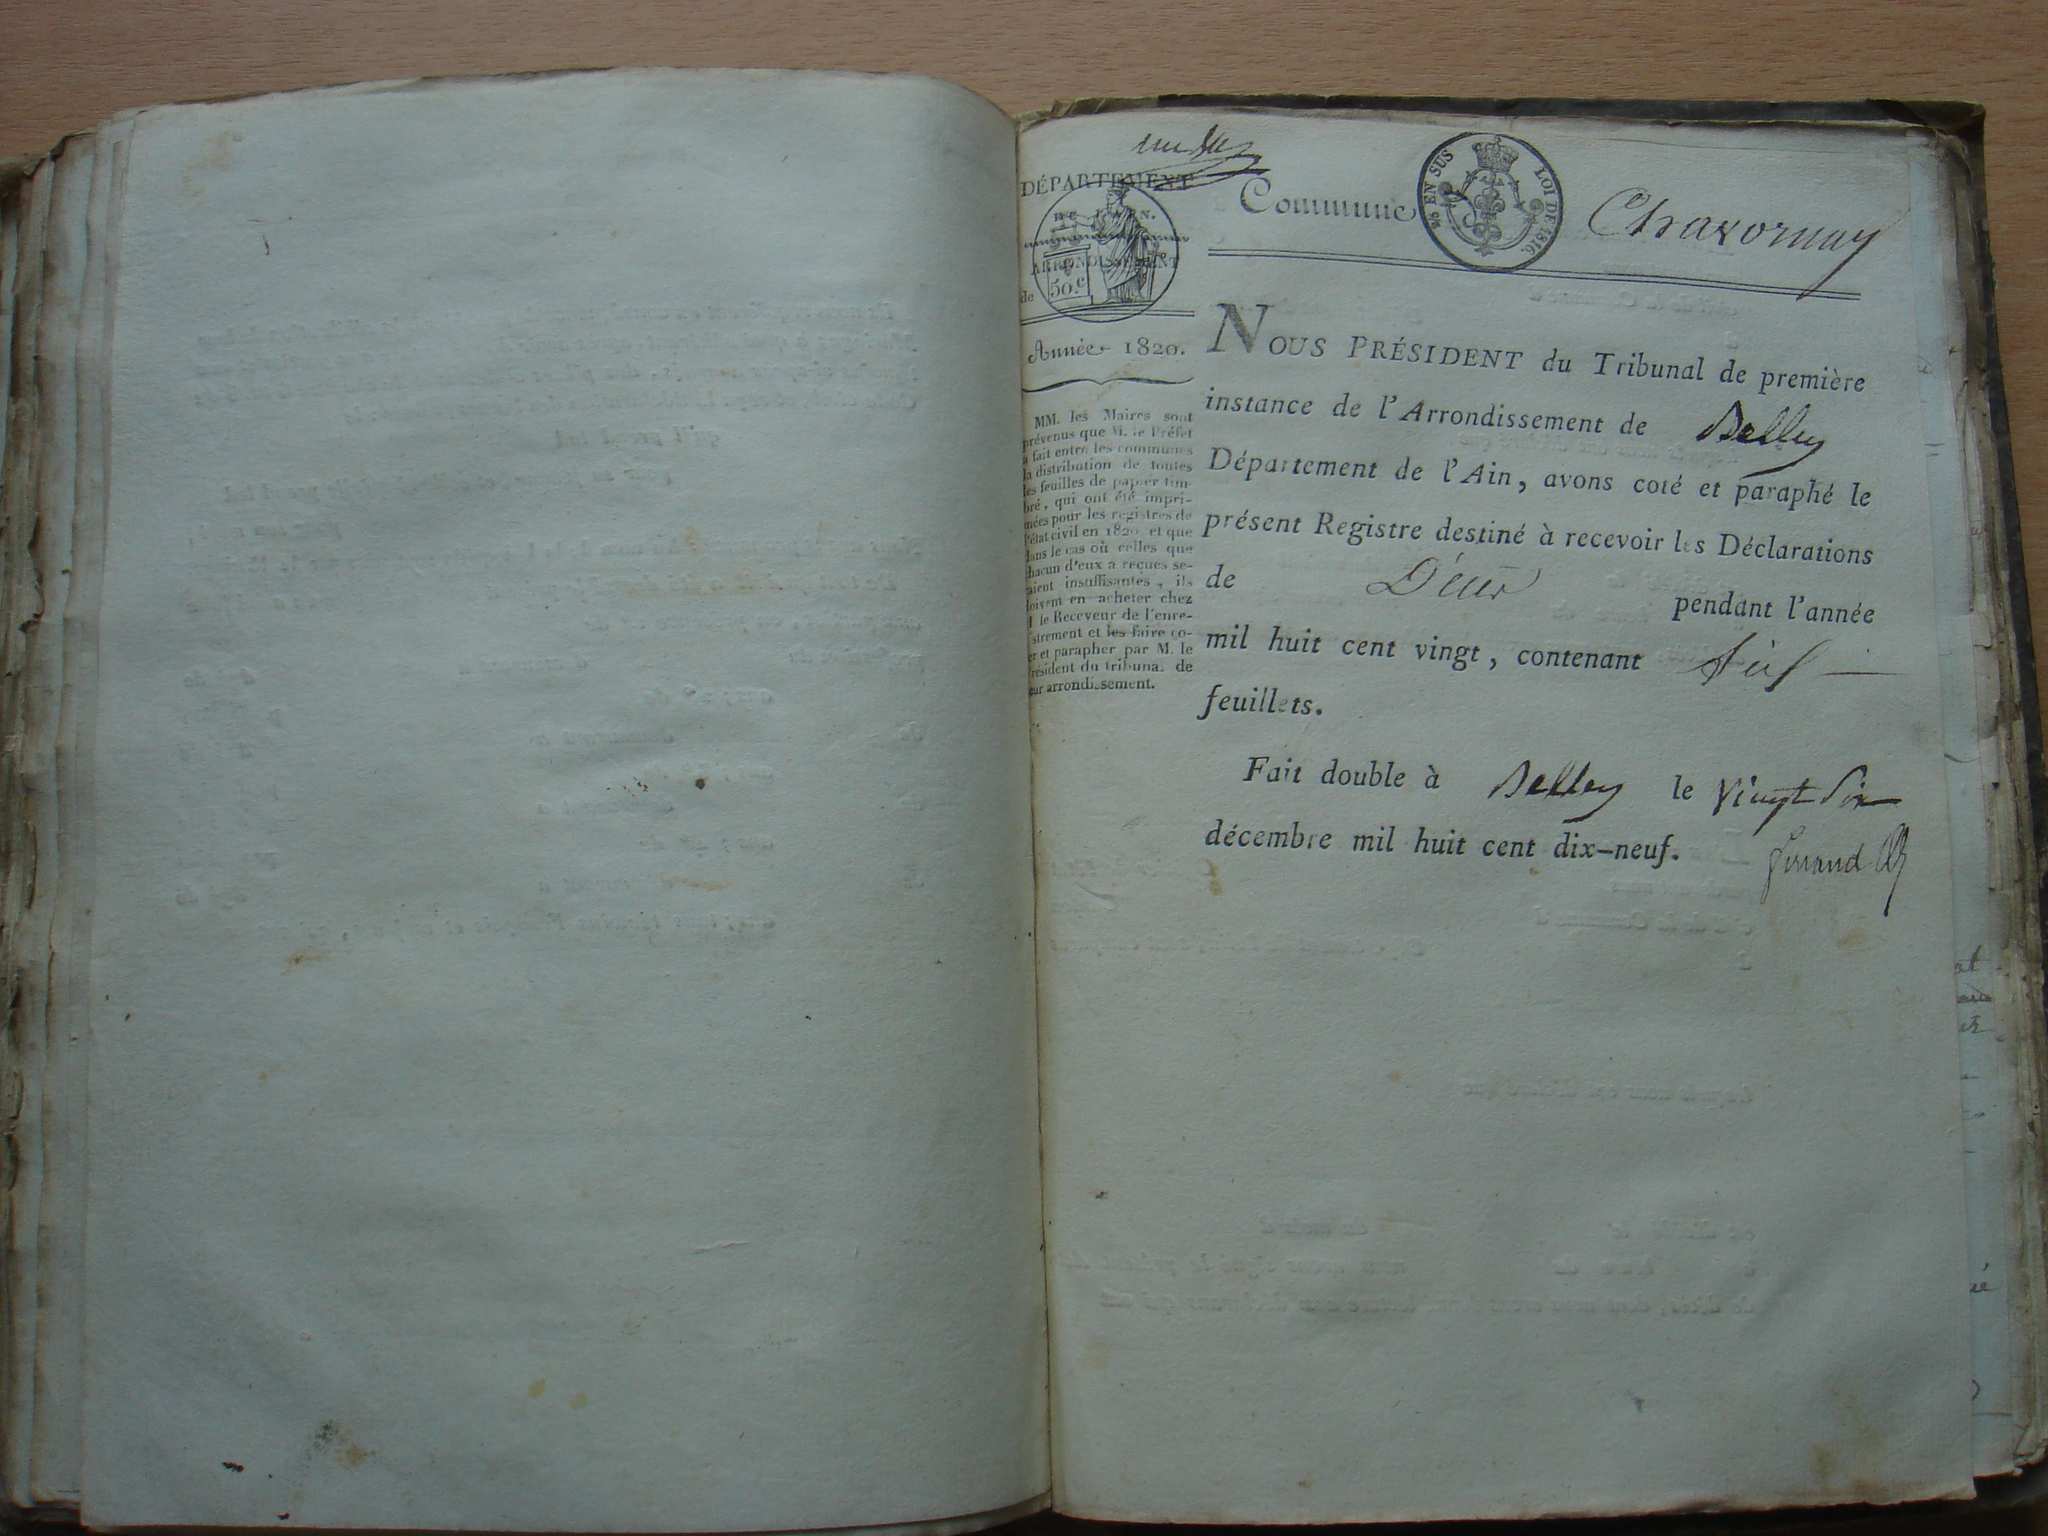 DÉPARTEMENT
DE L'AIN.
ARRONDISSEMENT
50.c
de
Année 1820.
MM. les Maires sont
prévenus que M. le Préfet
a fait entre les communes
la distribution de toutes
les feuilles de papier tim-
bré, qui ont été impri-
mées pour les registres de
l'état civil en 1820, et que
dans le cas où celles que
chacun d'eux a reçues se-
raient insuffisantes, ils
doivent en acheter chez
le Receveur de l'enre-
gistrement et les faire co-
ter et parapher par M. le
Président du tribunal de
leur arrondissement.
Commune
EN SUS LOI DE 1816.
Chavornay
NOUS PRÉSIDENT du Tribunal de première
instance de l'Arrondissement de Belley
Département de l'Ain, avons coté et paraphé le
présent Registre destiné à recevoir les Déclarations
de Décès pendant l'année
mil huit cent vingt, contenant
feuillets.
Fait double à Belley le vingt six
décembre mil huit cent dix-neuf.